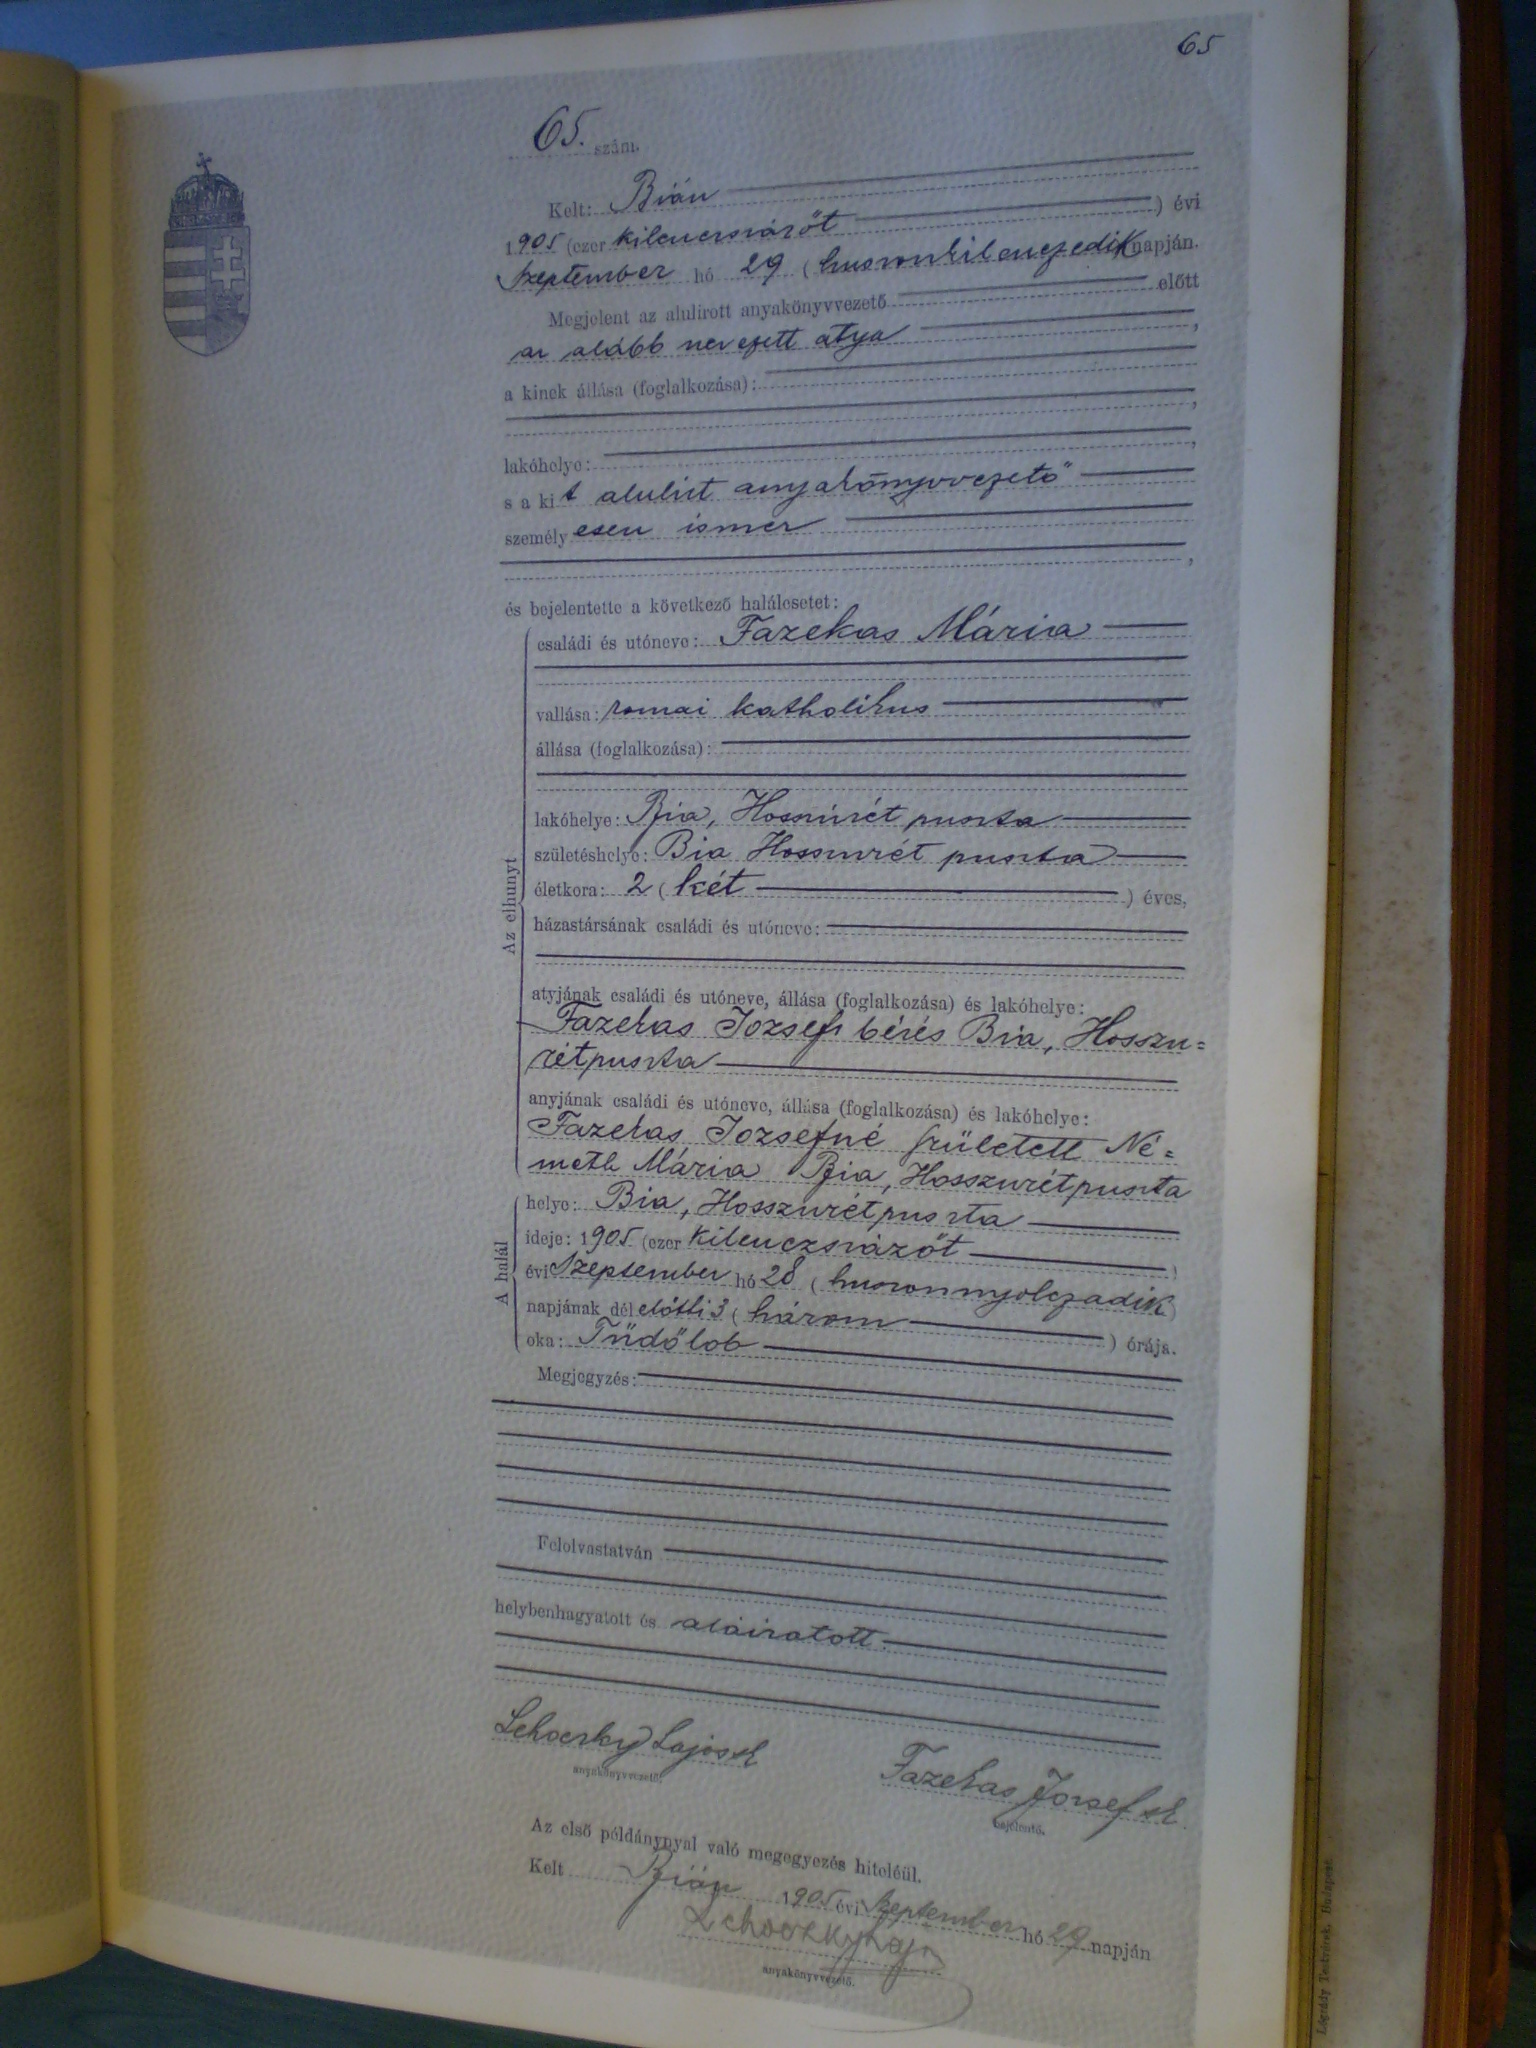 65
65. szám.
Kelt: Bián
1905 (ezer kilenczszázöt) évi
Szeptember hó 29 (huszonkilenczedik napján.
Megjelent az alulirott anyakönyvvezető előtt
az alább nevezett atya,
a kinek állása (foglalkozása):
lakóhelye:
s a kit alulirt anyakönyvvezető
személyesen ismer
és bejelentette a következő halálesetet:
Az elhunyt
családi és utóneve: Fazekas Mária
vallása: romai katholikus
állása (foglalkozása):
lakóhelye: Bia, Hosszúrét puszta
születéshelye: Bia Hosszurét puszta
életkora: 2 (két) éves,
házastársának családi és utóneve:
atyjának családi és utóneve, állása (foglalkozása) és lakóhelye:
Fazekas Jozsef béres Bia, Hosszu=
rétpuszta
anyjának családi és utóneve, állása (foglalkozása) és lakóhelye:
Fazekas Jozsefné született Né=
meth Mária Bia, Hosszurétpuszta
A halál
helye: Bia, Hosszurétpuszta
ideje: 1905 (ezer kilenczszázöt)
évi Szeptember hó 28 (huszonnyolczadik)
napjának dél előtti 3 (három) órája.
oka: Tüdőlob
Megjegyzés:
Felolvastatván
helybenhagyatott és aláiratott.
Lehoczky Lajos sk
anyakönyvvezető.
Fazekas József sk
bejelentő.
Az első példánynyal való megegyezés hiteléül.
Kelt Bián 1905 évi Szeptember hó 29 napján
Lehoczky Lajos
anyakönyvvezető.
Légrády Testvérek, Budapest.